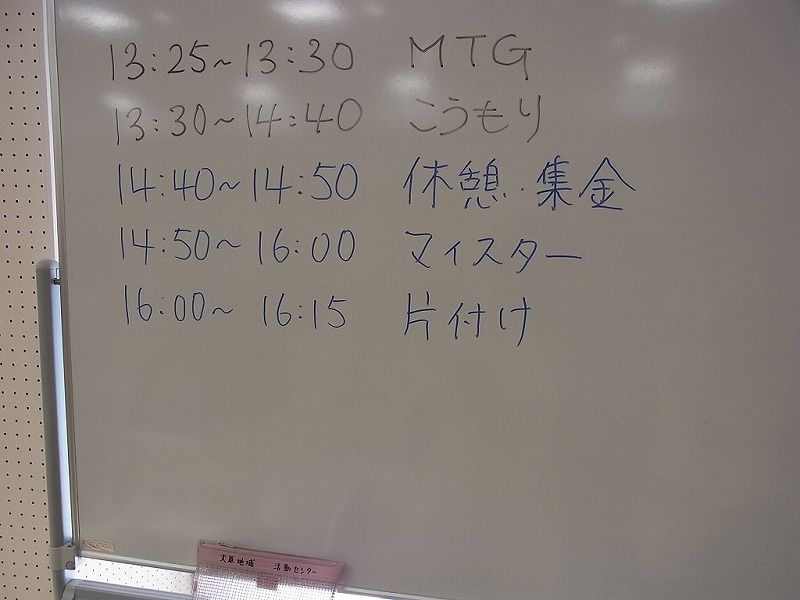 13:25~13:30 MTG
13:30~14:40 こうもり
14:40~14:50 休憩・集金
14:50~16:00 マイスター
16:00~16:15 片付け
大原地域 活動センター